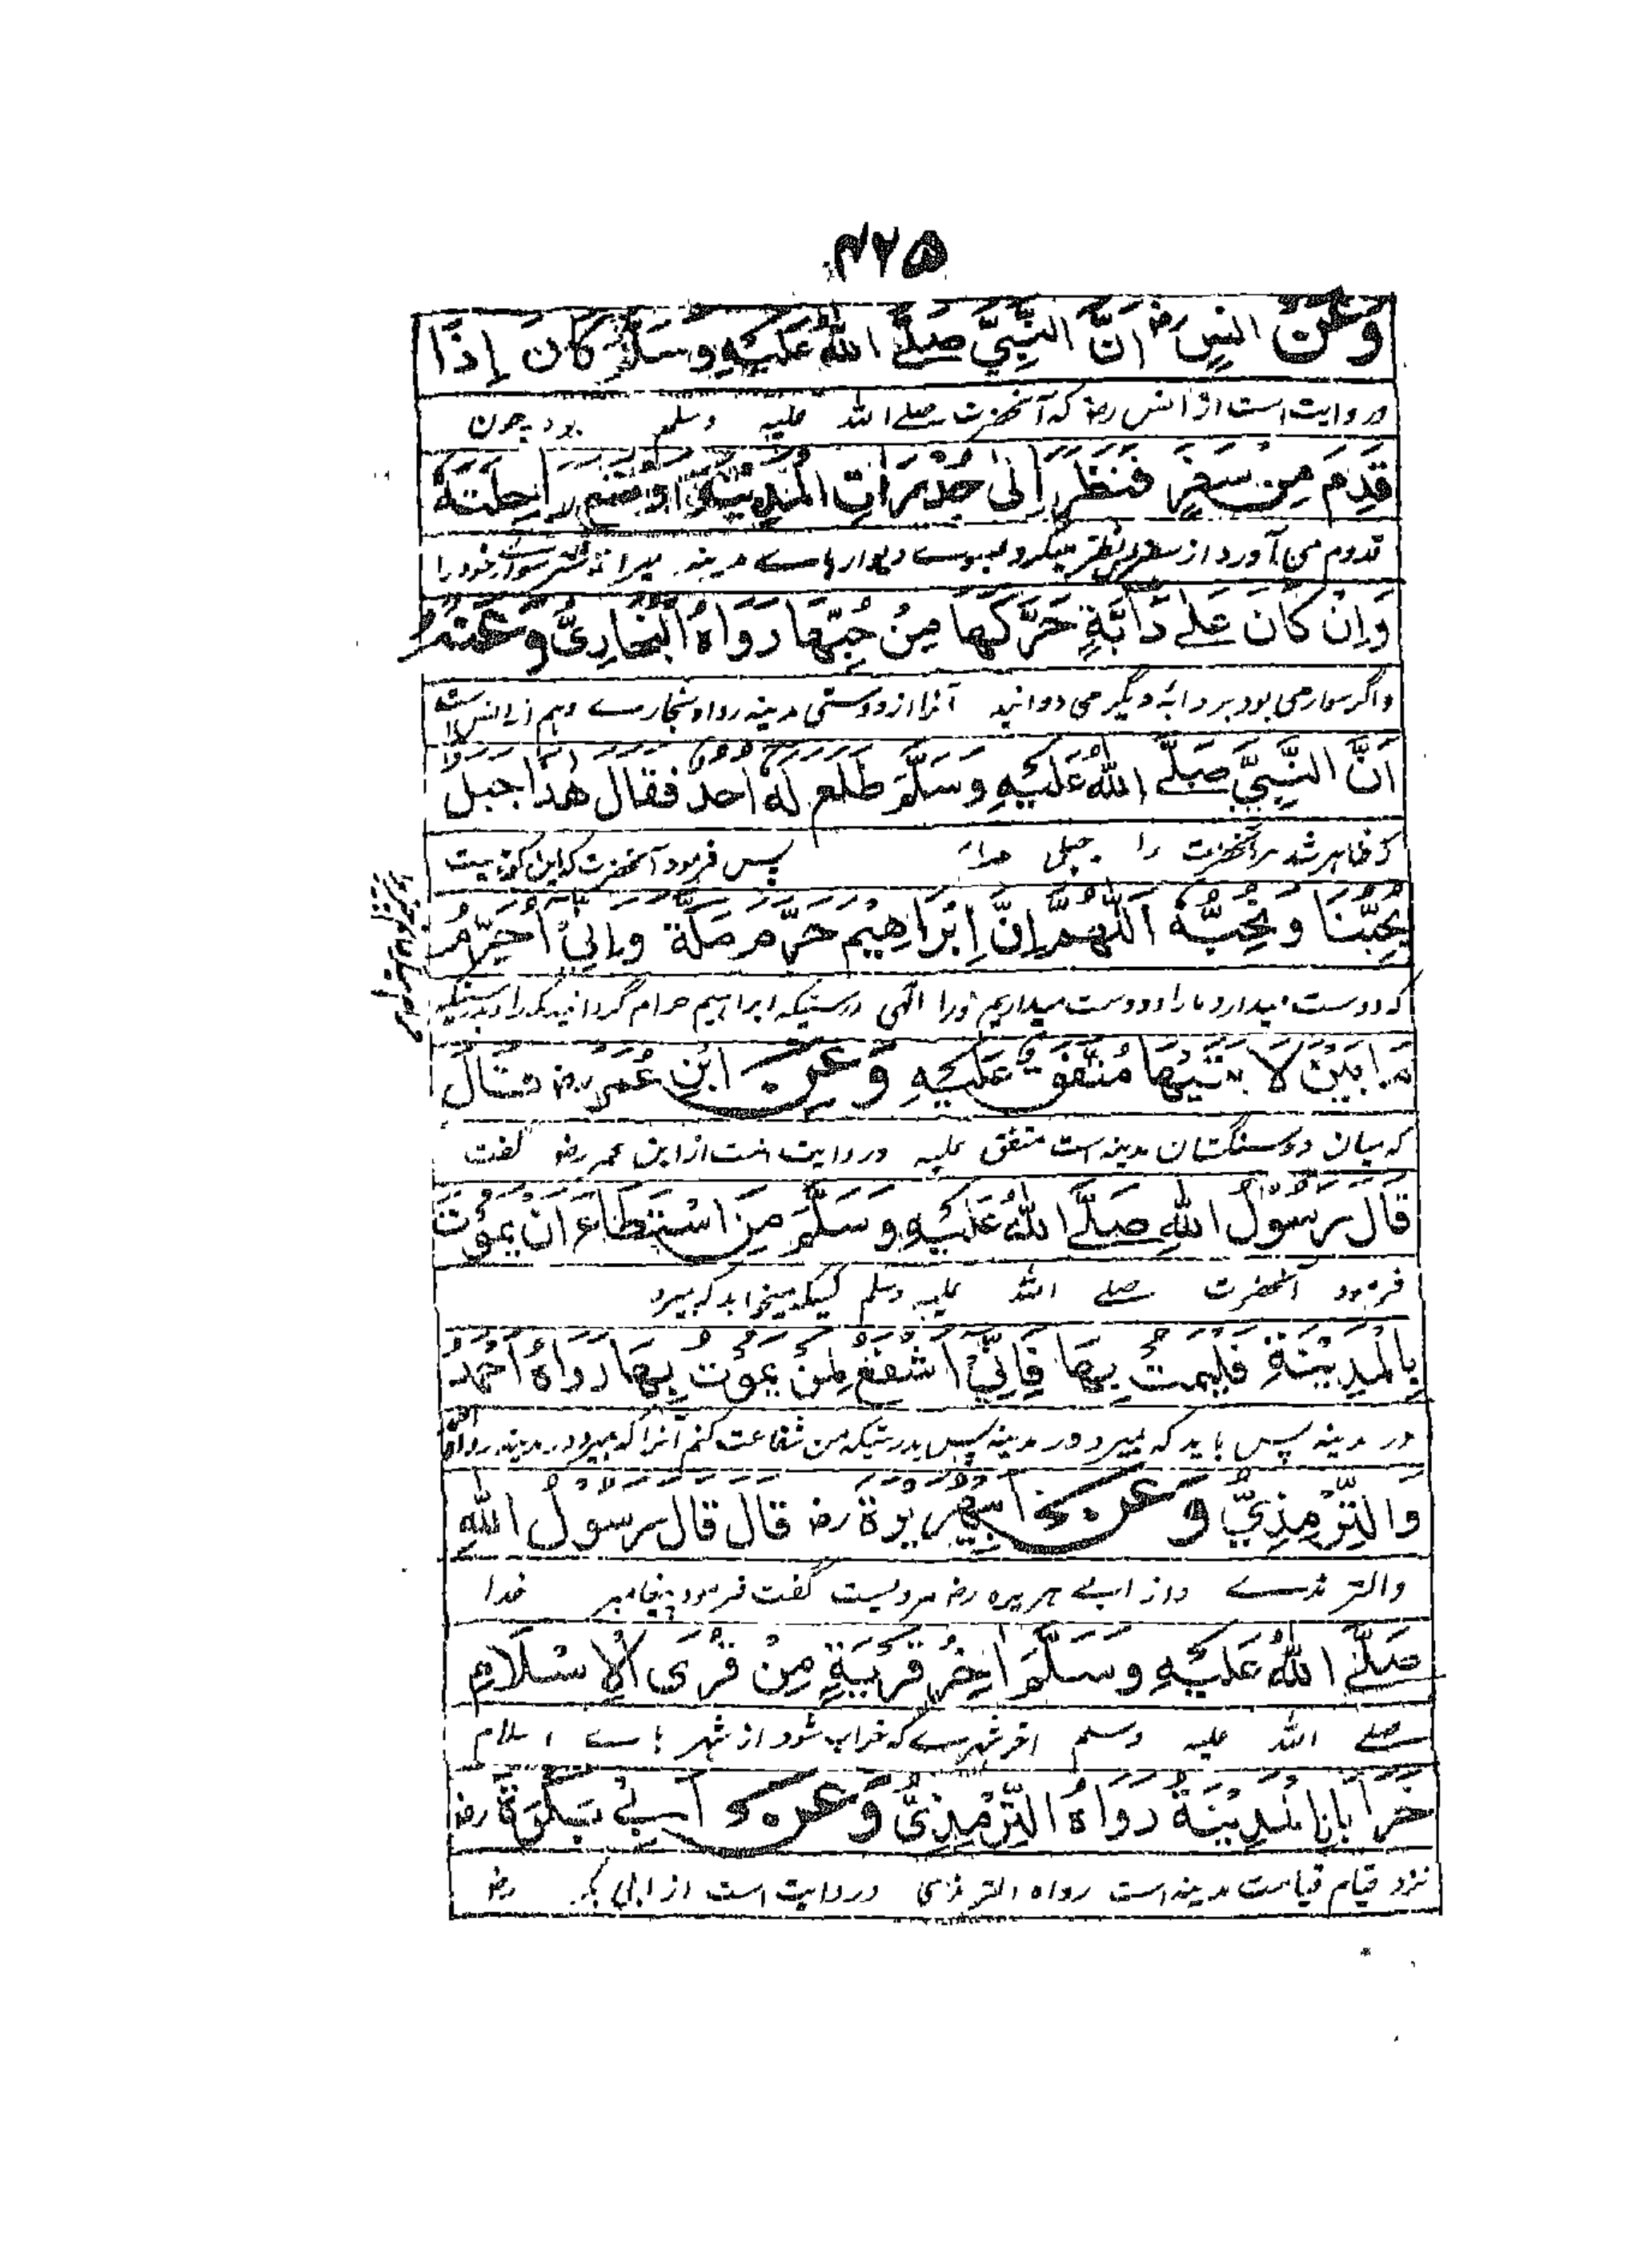 ۴۲۵
وَعَنْ انسٍ رض اَنَّ النَّبِيَّ صَلَّے اللهُ عَلَيْهِ وَسَلَّمَ كَانَ إِذَا
و روایت است از انس رض که آنحضرت صلے الله علیه وسلم بود چون
قَدِمَ مِنْ سَفَرٍ فَنَظَرَ اِلٰى جُدُرَاتِ الْمَدِيْنَةِ اَوْضَعَ رَاحِلَتَهُ
قدوم می آورد از سفر پس نظر میکرد بسوے دیوارهاے مدینه میراند شتر سوارے خود را
وَاِنْ كَانَ عَلٰے دَابَّةٍ حَرَّكَهَا مِنْ حُبِّهَا رَوَاهُ الْبُخَارِىُّ وَعَنْهُ
و اگر سوار می بود بر دابهٔ دیگر می دوانید آنرا از دوستی مدینه رواه بخارے و هم از انس است
اَنَّ النَّبِيَّ صَلَّے اللهُ عَلَيْهِ وَسَلَّمَ طَلَعَ لَهُ اُحُدٌ فَقَالَ هٰذَا جَبَلٌ
که ظاهر شد مر آنحضرت را جبل پس فرمود آنحضرت که این کوهیست
يُحِبُّنَا وَنُحِبُّهُ اَللّٰهُمَّ اِنَّ اِبْرَاهِيْمَ حَرَّمَ مَكَّةَ وَاِنِّىْ اُحَرِّمُ
که دوست میدارد مارا و دوست میداریم اورا الٰهی درستیکه ابراهیم حرام گردانید مکه را و بدرستیکه
مَا بَيْنَ لَا بَتَيْهَا مُتَّفَقٌ عَلَيْهِ وَعَنْ ابْنِ عُمَر رض قَالَ
که میان دو سنگستان مدینه است متفق علیه و روایت است از ابن عمر رض گفت
قَالَ رَسُوْلُ اللهِ صَلَّے اللهُ عَلَيْهِ وَسَلَّمَ مَنِ اسْتَطَاعَ اَنْ يَمُوْتَ
فرمود آنحضرت صلے الله علیه وسلم کسیکه میخواهد که بمیرد
بِالْمَدِيْنَةِ فَلْيَمُتْ بِهَا فَاِنِّىْ اَشْفَعُ لِمَنْ يَمُوْتُ بِهَا رَوَاهُ اَحْمَدُ
در مدینه پس باید که بمیرد در مدینه پس بدرستیکه من شفاعت کنم آنرا که بمیرد در مدینه رواه
وَالتِّرْمِذِيُّ وَعَنْ اَبِىْ هُرَيْرَةَ رض قَالَ قَالَ رَسُوْلُ اللهِ
والترمذے و از ابے هریره رض مرویست گفت فرمود پیغامبر خدا
صَلَّے اللهُ عَلَيْهِ وَسَلَّمَ اٰخِرُ قَرْيَةٍ مِنْ قُرَى الْاِسْلَامِ
صلے الله علیه وسلم آخر شهرے که خراب شود از شهر هاے اسلام
خَرَابًا الْمَدِيْنَةُ رَوَاهُ التِّرْمِذِىُّ وَعَنْ اَبِىْ بَكْرَةَ رض
نزد قیام قیامت مدینه است رواه الترمذی و روایت است از ابی بکره رض